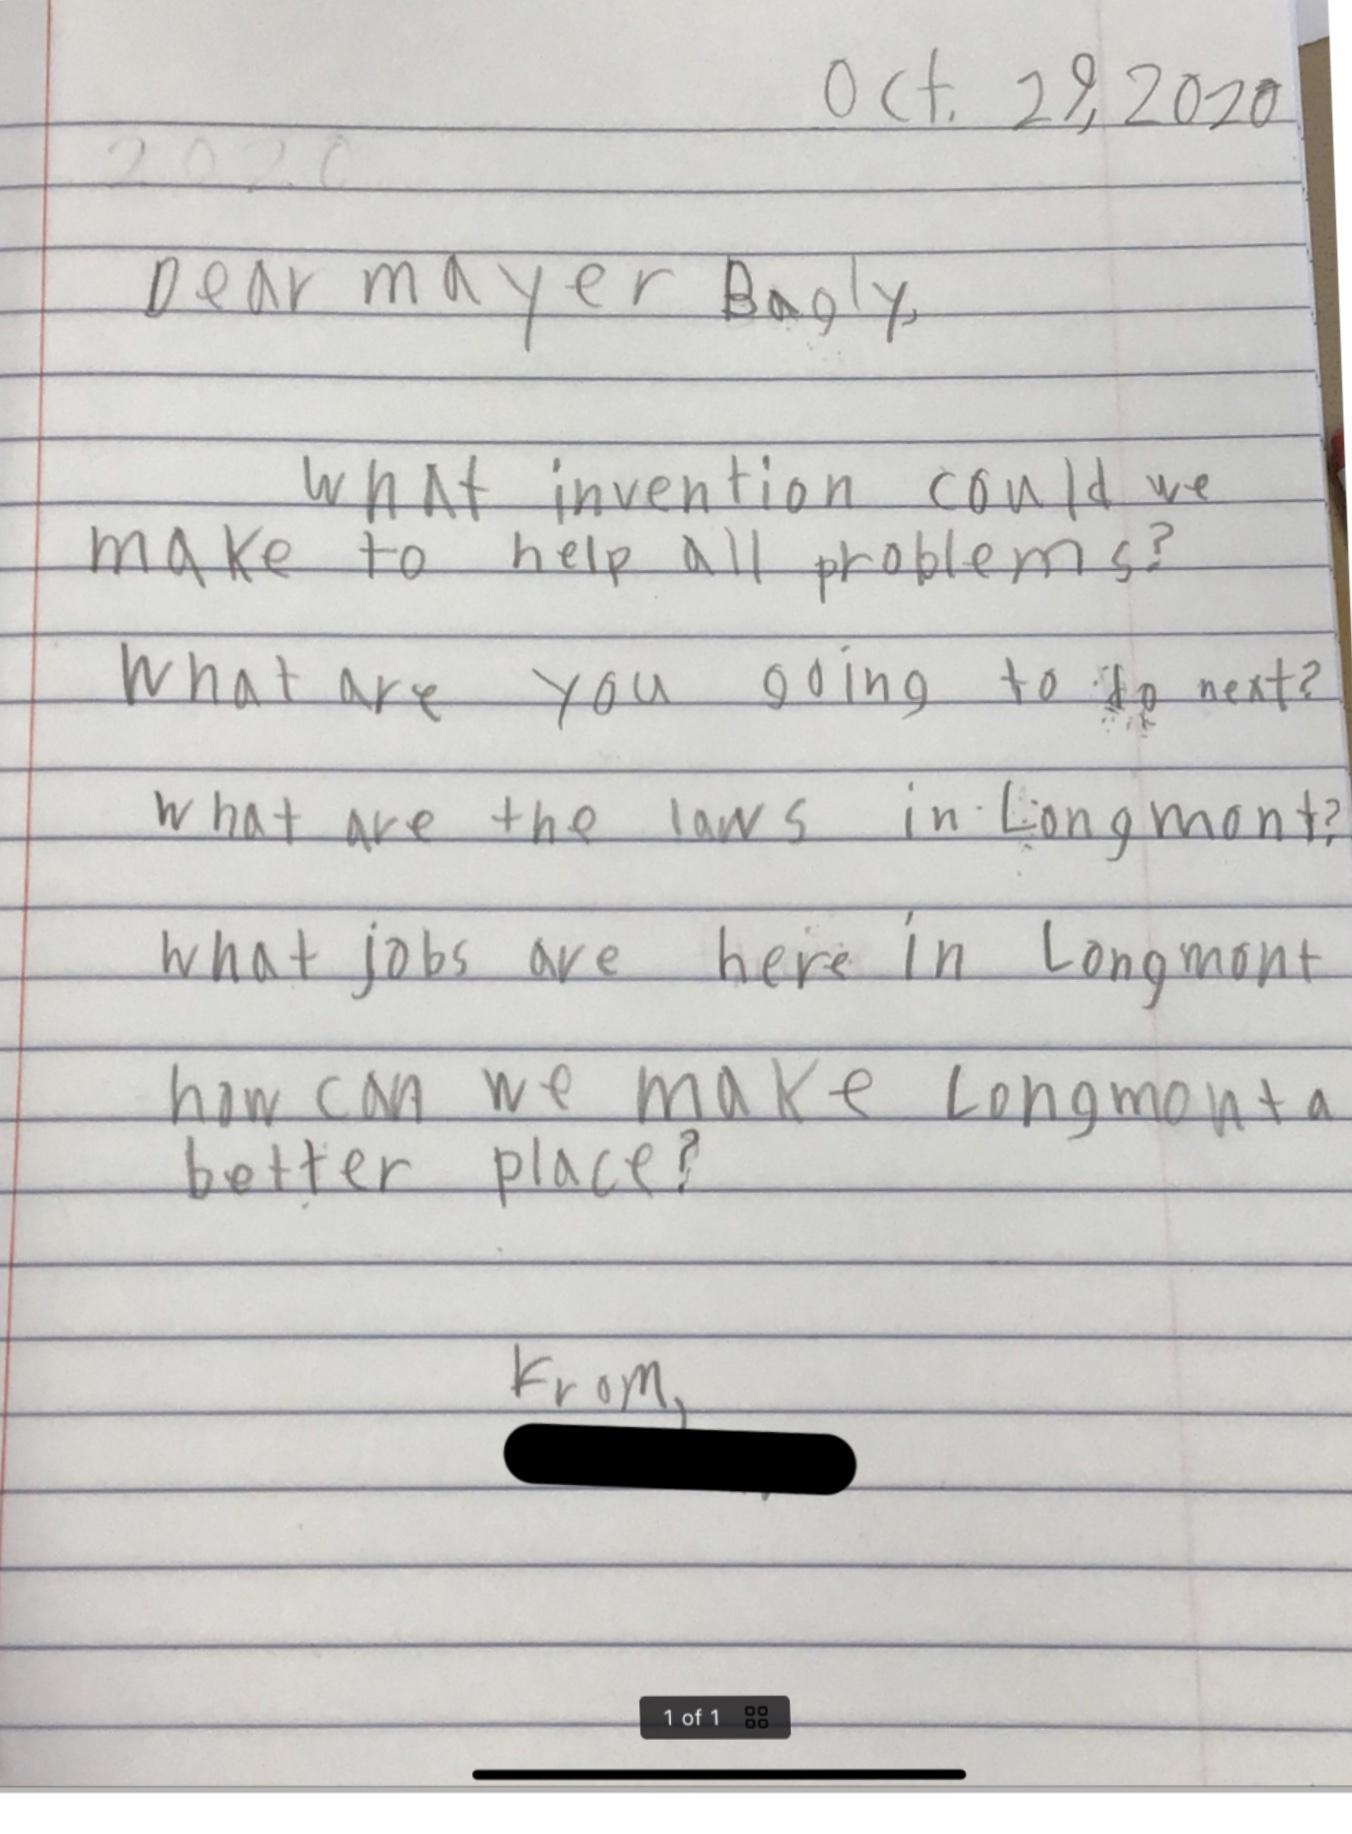 Oct. 29, 2020
2020
Dear mayer Bagly,
What invention could we
make to help all problems?
What are you going to do next?
what are the laws in Longmont?
what jobs are here in Longmont
how can we make Longmont a
better place?
From,
1 of 1